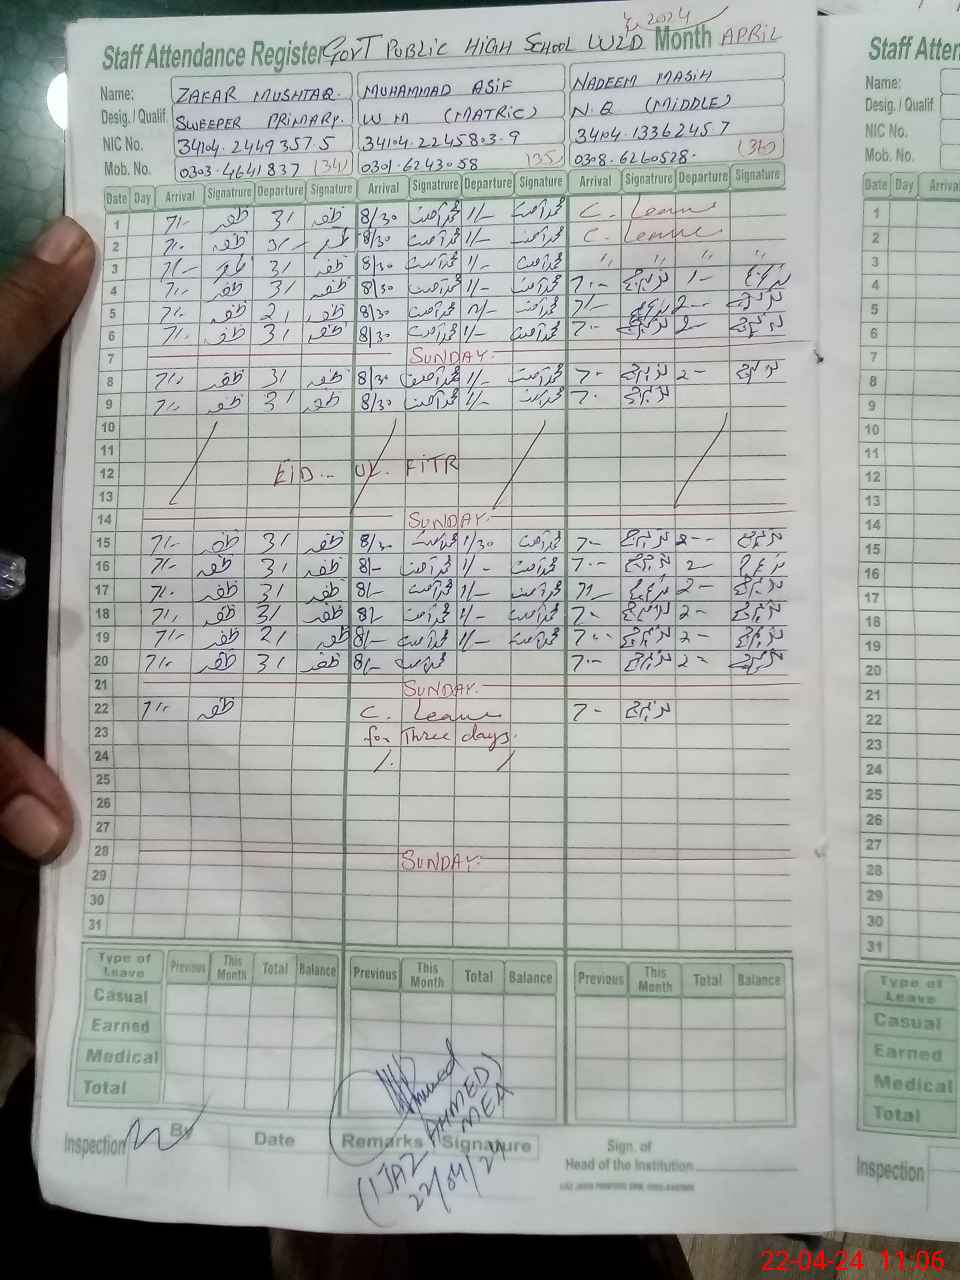 2024
Staff Attendance Register GOVT PUBLIC HIGH SCHOOL WZD Month APRIL
Name: ZAFAR MUSHTAQ. MUHAMMAD ASIF NADEEM MASIH
Desig. / Qualif. SWEEPER PRIMARY. W.M (MATRIC) N.Q (MIDDLE)
NIC No. 34104.2449357.5 34104.2245803.9 34104.1336245 7
Mob. No. 0303.4641837 (34) 0301.6243058 (35) 0308.6260528. (36)
Date Day Arrival Signature Departure Signature Arrival Signature Departure Signature Arrival Signature Departure Signature
1 7/- ظفر 31 ظفر 8/30 محمد آصف 1/- محمد آصف C. Leave
2 7/- ظفر 31- ظفر 8/30 محمد آصف 1/- محمد آصف C. Leave
3 7/- ظفر 31 ظفر 8/30 محمد آصف 1/- محمد آصف " " " "
4 7/- ظفر 31 ظفر 8/30 محمد آصف 1/- محمد آصف 7-- 1-
5 7/- ظفر 21 ظفر 8/30 محمد آصف محمد آصف 7/- 2--
6 7/- ظفر 31 ظفر 8/30 محمد آصف 1/- محمد آصف 7- 2-
7 SUNDAY.
8 7/- ظفر 31 ظفر 8/30 محمد آصف 1/- محمد آصف 7- 2-
9 7/- ظفر 31 ظفر 8/30 محمد آصف 1/- محمد آصف 7-
10
11
12 EID... UL. FITR
13
14 SUNDAY.
15 7/- ظفر 31 ظفر 8/30 محمد آصف 1/30 محمد آصف 7- 2--
16 7/- ظفر 31 ظفر 8/- محمد آصف 1/- محمد آصف 7-- 2-
17 7/- ظفر 31 ظفر 8/- محمد آصف 1/- محمد آصف 7/- 2-
18 7/- ظفر 31 ظفر 8/- محمد آصف 1/- محمد آصف 7- 2-
19 7/- ظفر 21 ظفر 8/- محمد آصف 1/- محمد آصف 7-- 2-
20 7/- ظفر 31 ظفر 8/- محمد آصف 7-- 2-
21 SUNDAY.
22 7/- ظفر C. Leave 7-
23 for Three days.
24
25
26
27
28 SUNDAY.
29
30
31
Type of Leave Previous This Month Total Balance Previous This Month Total Balance Previous This Month Total Balance
Casual
Earned
Medical
Total
Inspection By Date Remarks Signature Sign. of
Head of the Institution
Ahmed
(IJAZ AHMED)
MEA
22/04/24
Staff Atten
Name:
Desig. / Qualif.
NIC No.
Mob. No.
Date Day Arrival
1
2
3
4
5
6
7
8
9
10
11
12
13
14
15
16
17
18
19
20
21
22
23
24
25
26
27
28
29
30
31
Type of Leave
Casual
Earned
Medical
Total
Inspection
22-04-24 11:06